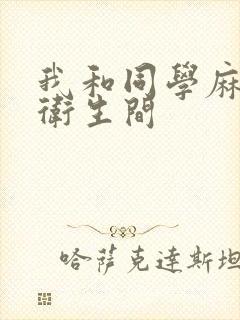 我和同學麻
衛生間
哈薩克達斯坦